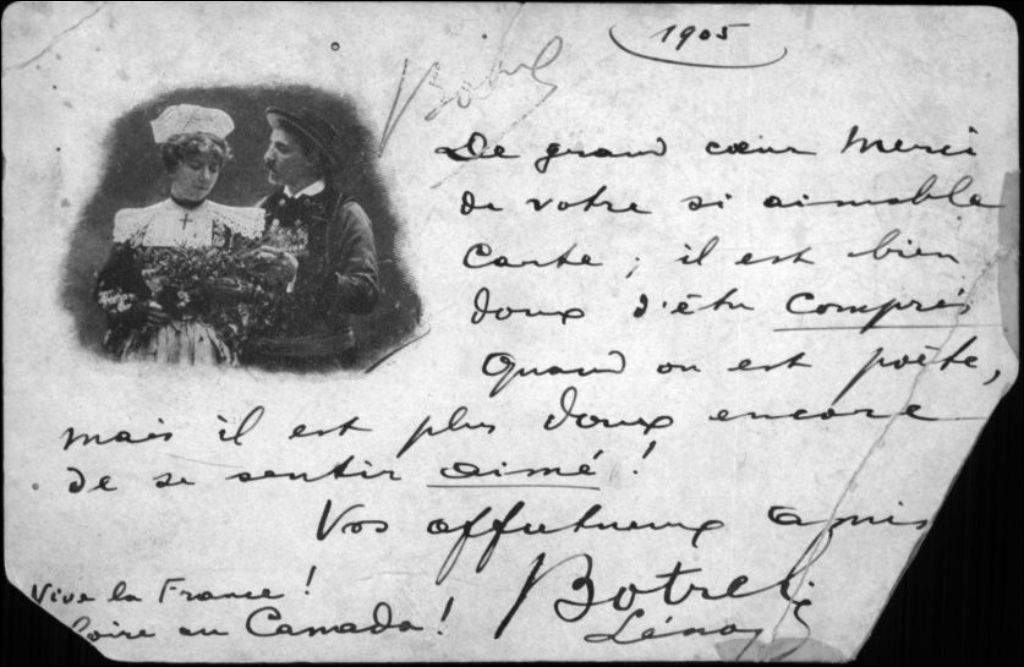 1905
Botrel
De grand cœur Merci
de votre si aimable
Carte ; il est bien
doux d'être compris
Quand on est poète,
mais il est plus doux encore
de se sentir aimé !
Vos affectueux amis
Botrel
Léna
Vive la France !
Gloire au Canada !